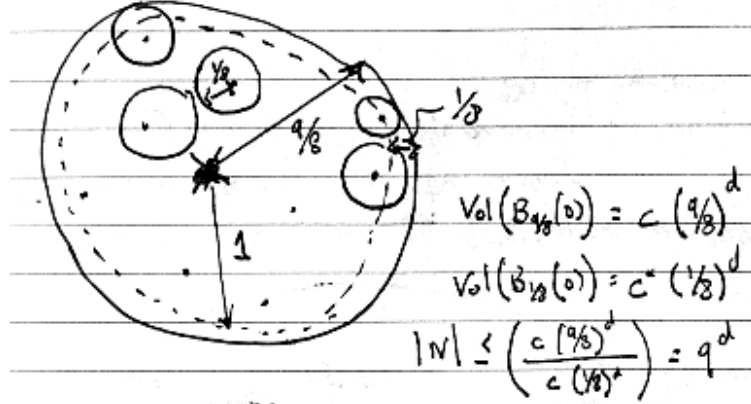 1/8
9/8
1/8
1
Vol(B_{9/8}(0)) = c (9/8)^d
Vol(B_{1/8}(0)) = c (1/8)^d
|N| ≤ (c (9/8)^d / c (1/8)^d) = 9^d